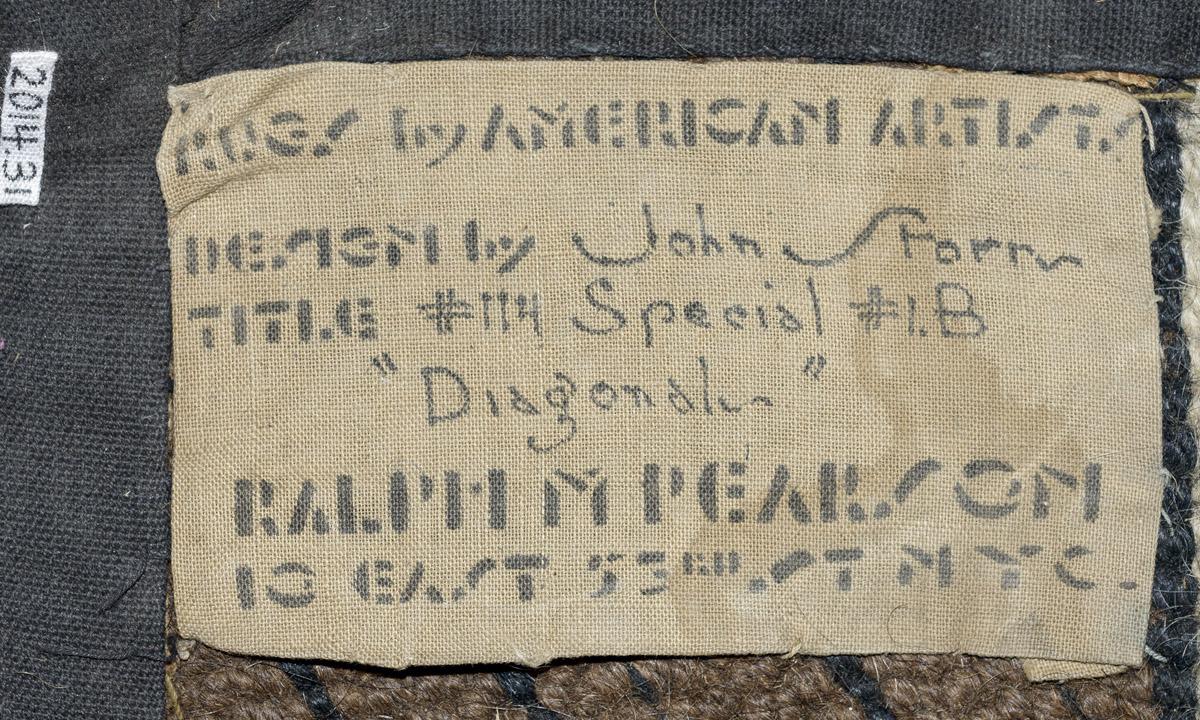 2014.31
RUGS by AMERICAN ARTISTS
DESIGN by John Storrs
TITLE #114 Special #1.B
"Diagonals"
RALPH M PEARSON
10 EAST 53RD. ST N Y C.